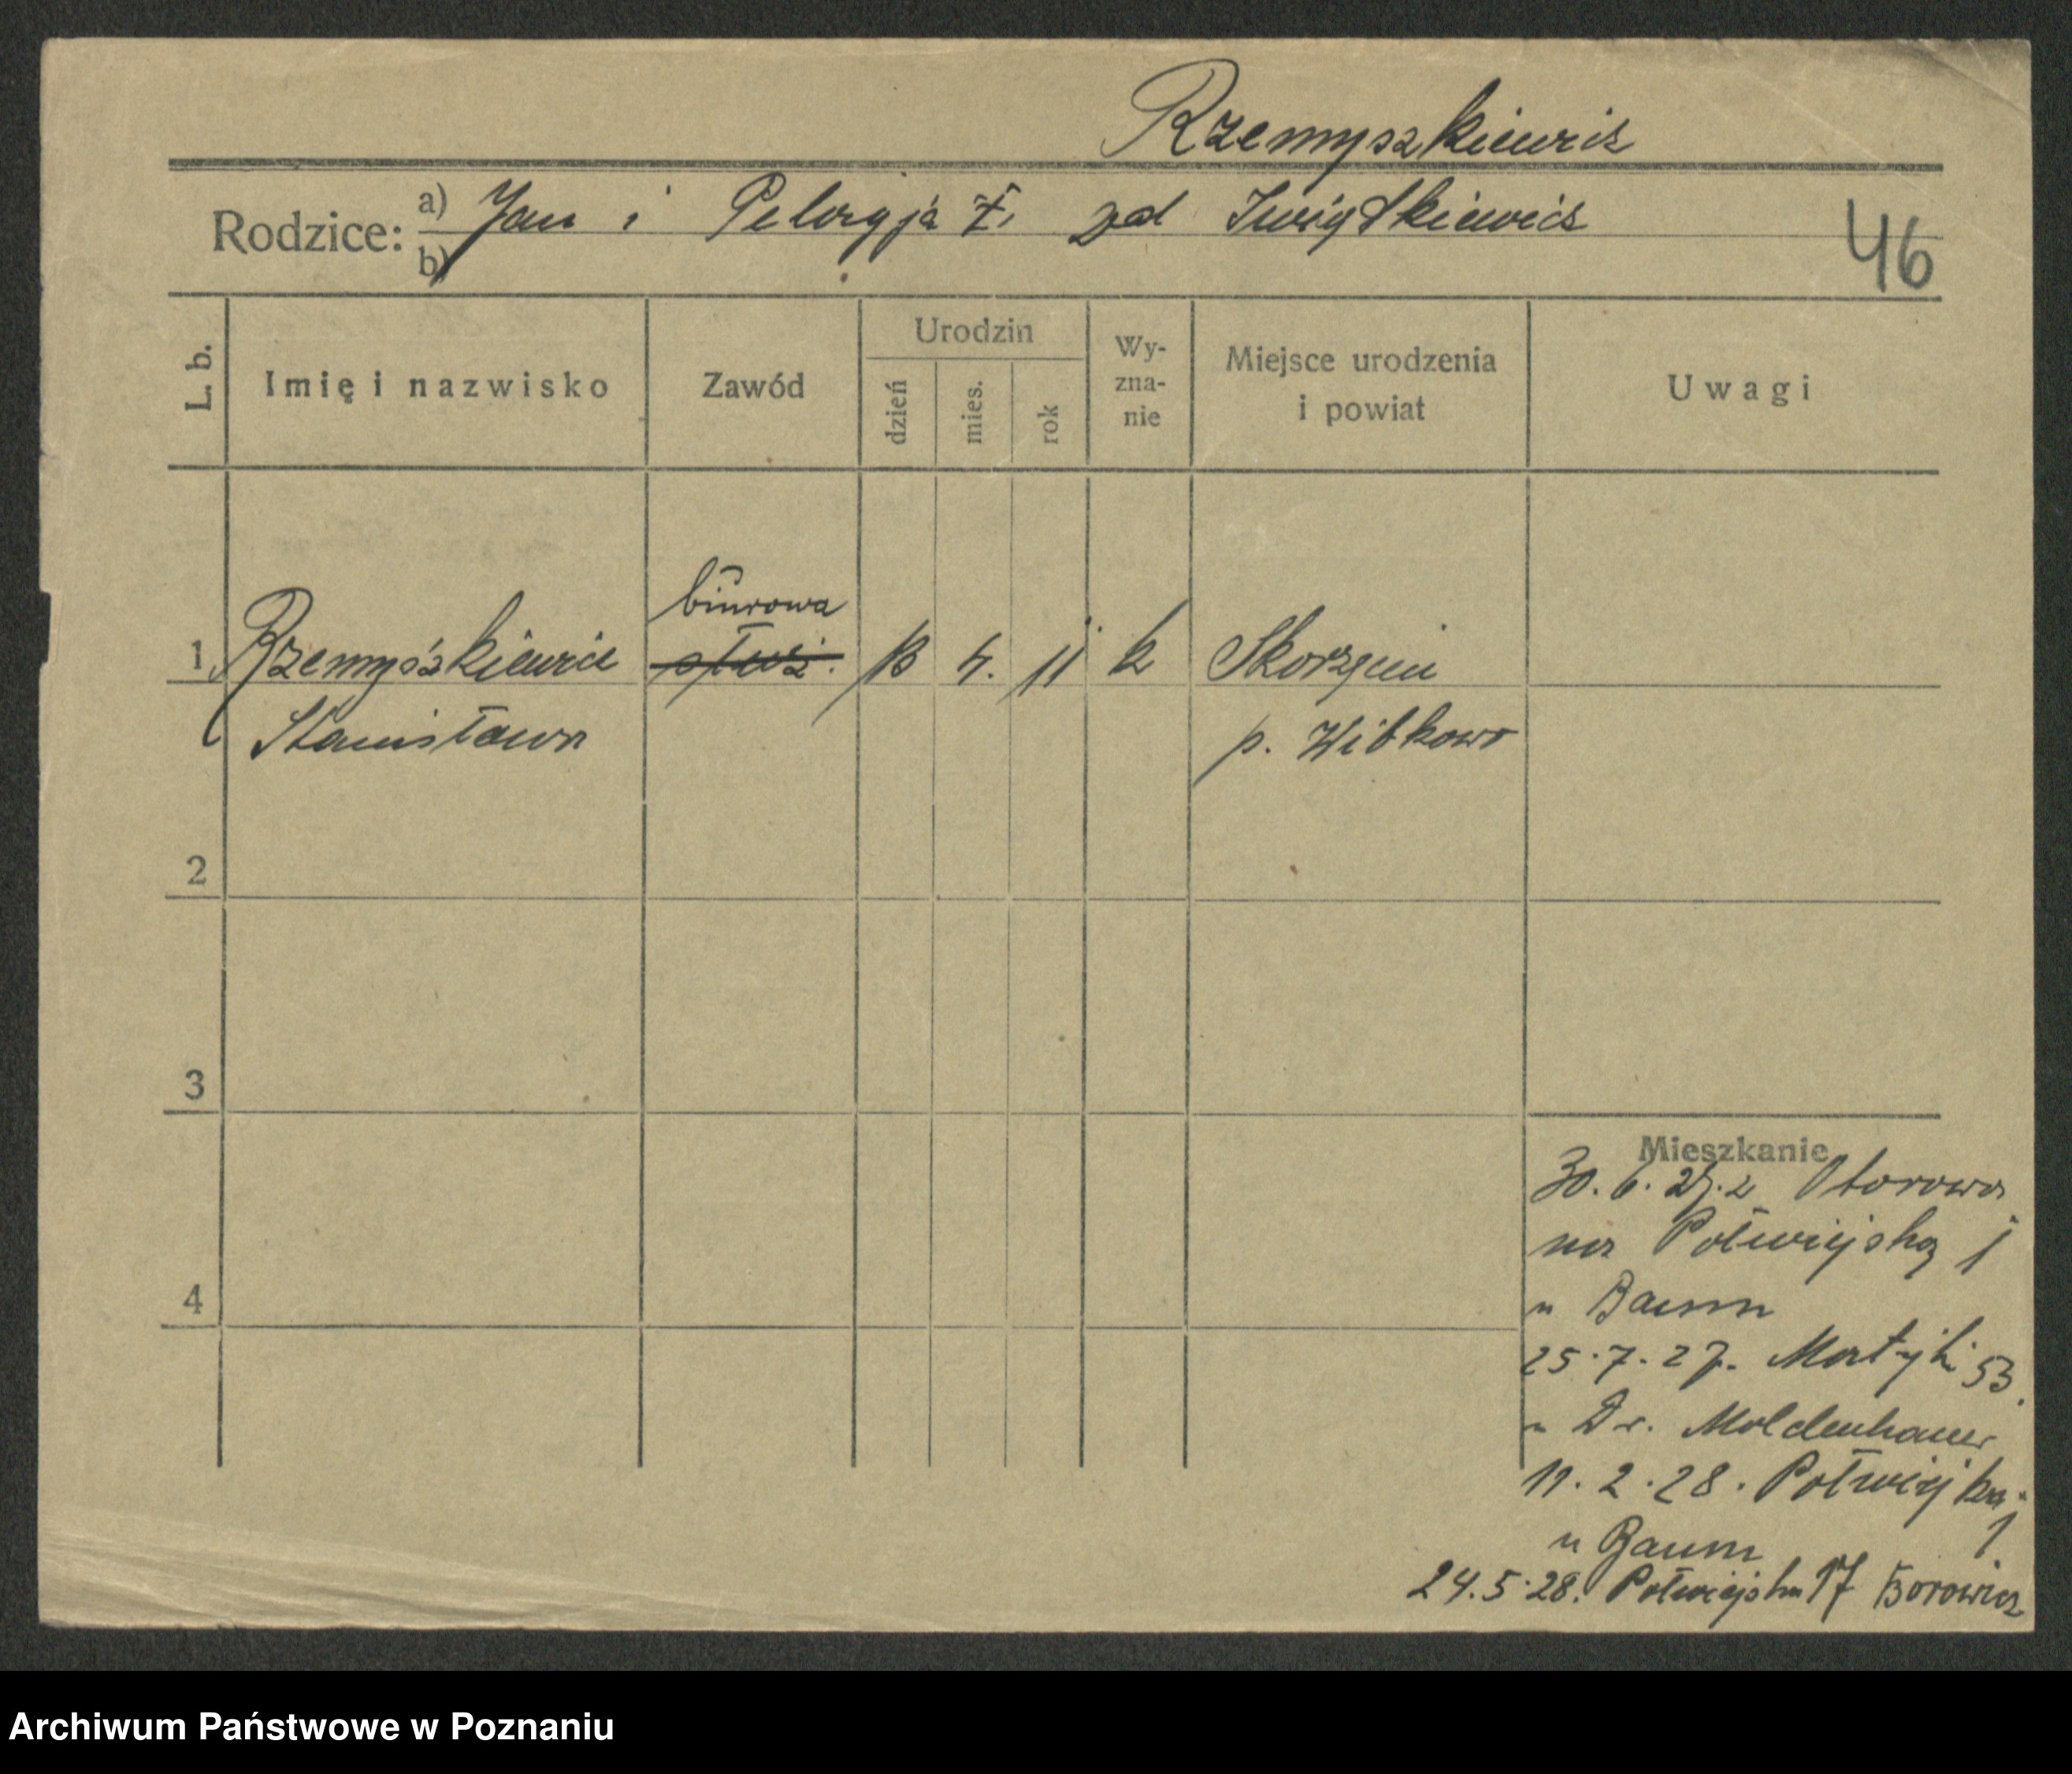 Rzemyszkiewicz
Rodzice: a) Jan i Pelagja ż. zd Iwiątkiewicz
b)
46
L. b.
Imię i nazwisko
Zawód
Urodzin
dzień
mies.
rok
Wy-
zna-
nie
Miejsce urodzenia
i powiat
Uwagi
biurowa
1 Rzemyszkiewicz służ. 13 4. 11 k Skorzęcin
Stanisława p. Witkowo
2
3
4
Mieszkanie
30. 6. 27. z Otorowa
na Półwiejską 1
u Baum
25.7.27. Matejki 53.
u Dr. Moldenhauer
11.2.28. Półwiejska
1
u Baum
24.5.28. Półwiejska 17 Borowicz
Archiwum Państwowe w Poznaniu